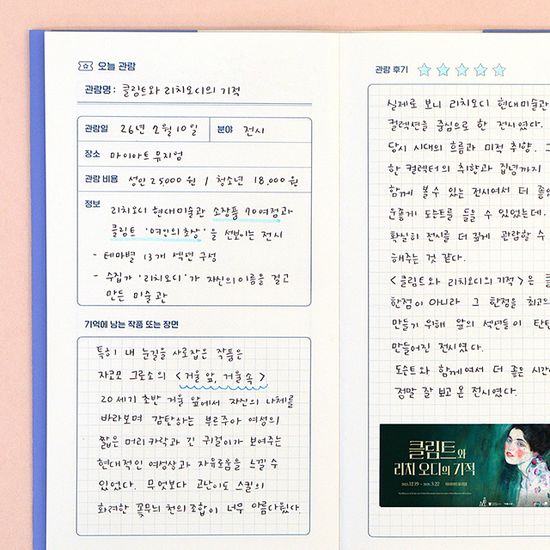 오늘 관람
관람명: 클림트와 리치오디의 기적
관람일 26년 2월 10일 분야 전시
장소 마이아트 뮤지엄
관람 비용 성인 25,000 원 / 청소년 18,000 원
정보 리치오디 현대미술관 소장품 70여점과
클림트 '여인의 초상'을 선보이는 전시
- 테마별 13개 섹션 구성
- 수집가 '리치오디'가 자신의 이름을 걸고
만든 미술관
기억에 남는 작품 또는 장면
특히 내 눈길을 사로잡은 작품은
자코모 그로소의 <거울 앞, 거울 속>
20세기 초반 거울 앞에서 자신의 나체를
바라보며 감탄하는 부르주아 여성의
짧은 머리카락과 긴 귀걸이가 보여주는
현대적인 여성상과 자유로움을 느낄 수
있었다. 무엇보다 고난이도 스킬의
화려한 꽃무늬 천의 조합이 너무 아름다웠다
관람 후기
실제로 보니 리치오디 현대미술관
컬렉션을 중심으로 한 전시였다.
당시 시대의 흐름과 미적 취향, 그
한 컬렉터의 취향과 집념까지
함께 볼 수 있는 전시여서 더 좋았
운좋게 도슨트를 들을 수 있었는데,
확실히 전시를 더 깊게 관람할 수
해주는 것 같다.
<클림트와 리치오디의 기적>은 클
한점이 아니라 그 한점을 최고의
만들기 위해 앞의 섹션들이 탄탄
만들어진 전시였다.
도슨트와 함께여서 더 좋은 시간
정말 잘 보고 온 전시였다.
클림트와
리치오디의 기적
2025.12.19 - 2026.3.22